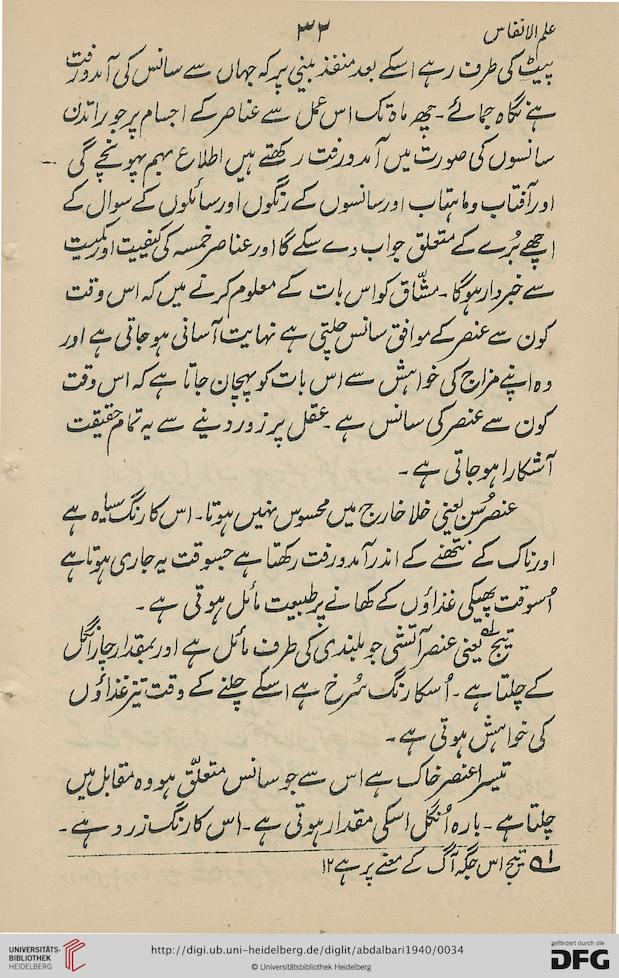 علم الانفاس ۳۲
پیٹ کی طرف رہے اسکے بعد منفذ بینی پر کہ جہاں سے سانس کی آمدورفت
ہے نگاہ جمائے۔ چھ ماہ تک اس عمل سے عناصر کے اجسام پر جو راتدن
سانسوں کی صورت میں آمدورفت رکھتے ہیں اطلاع بہم پہونچے گی
اور آفتاب و ماہتاب اور سانسوں کے رنگوں اور سائلوں کے سوال کے
اچھے بُرے کے متعلق جواب دے سکے گا اور عناصر خمسہ کی کیفیت اور کمیت
سے خبردار ہوگا۔ مشّاق کو اس بات کے معلوم کرنے میں کہ اس وقت
کون سے عنصر کے موافق سانس چلتی ہے نہایت آسانی ہو جاتی ہے اور
وہ اپنے مزاج کی خواہش سے اس بات کو پہچان جاتا ہے کہ اس وقت
کون سے عنصر کی سانس ہے۔ عقل پر زور دینے سے یہ تمام حقیقت
آشکارا ہو جاتی ہے۔
عنصر سُن یعنی خلا خارج میں محسوس نہیں ہوتا۔ اس کا رنگ سیاہ ہے
اور ناک کے نتھنے کے اندر آمدورفت رکھتا ہے جسوقت یہ جاری ہوتا ہے
اُسوقت پھیکی غذاؤں کے کھانے پر طبیعت مائل ہوتی ہے۔
تیج لہ یعنی عنصر آتشی جو بلندی کی طرف مائل ہے اور بمقدار چار انگل
کے چلتا ہے۔ اُسکا رنگ سُرخ ہے اسکے چلنے کے وقت تیز غذاؤں
کی خواہش ہوتی ہے۔
تیسرا عنصر خاک ہے اس سے جو سانس متعلّق ہو وہ مقابل میں
چلتا ہے۔ بارہ اُنگل اسکی مقدار ہوتی ہے۔ اس کا رنگ زرد ہے۔
لہ تیج اس جگہ آگ کے معنے پر ہے ۱۲
UNIVERSITÄTS-
BIBLIOTHEK
HEIDELBERG
http://digi.ub.uni-heidelberg.de/diglit/abdalbari1940/0034
© Universitätsbibliothek Heidelberg
gefördert durch die
DFG